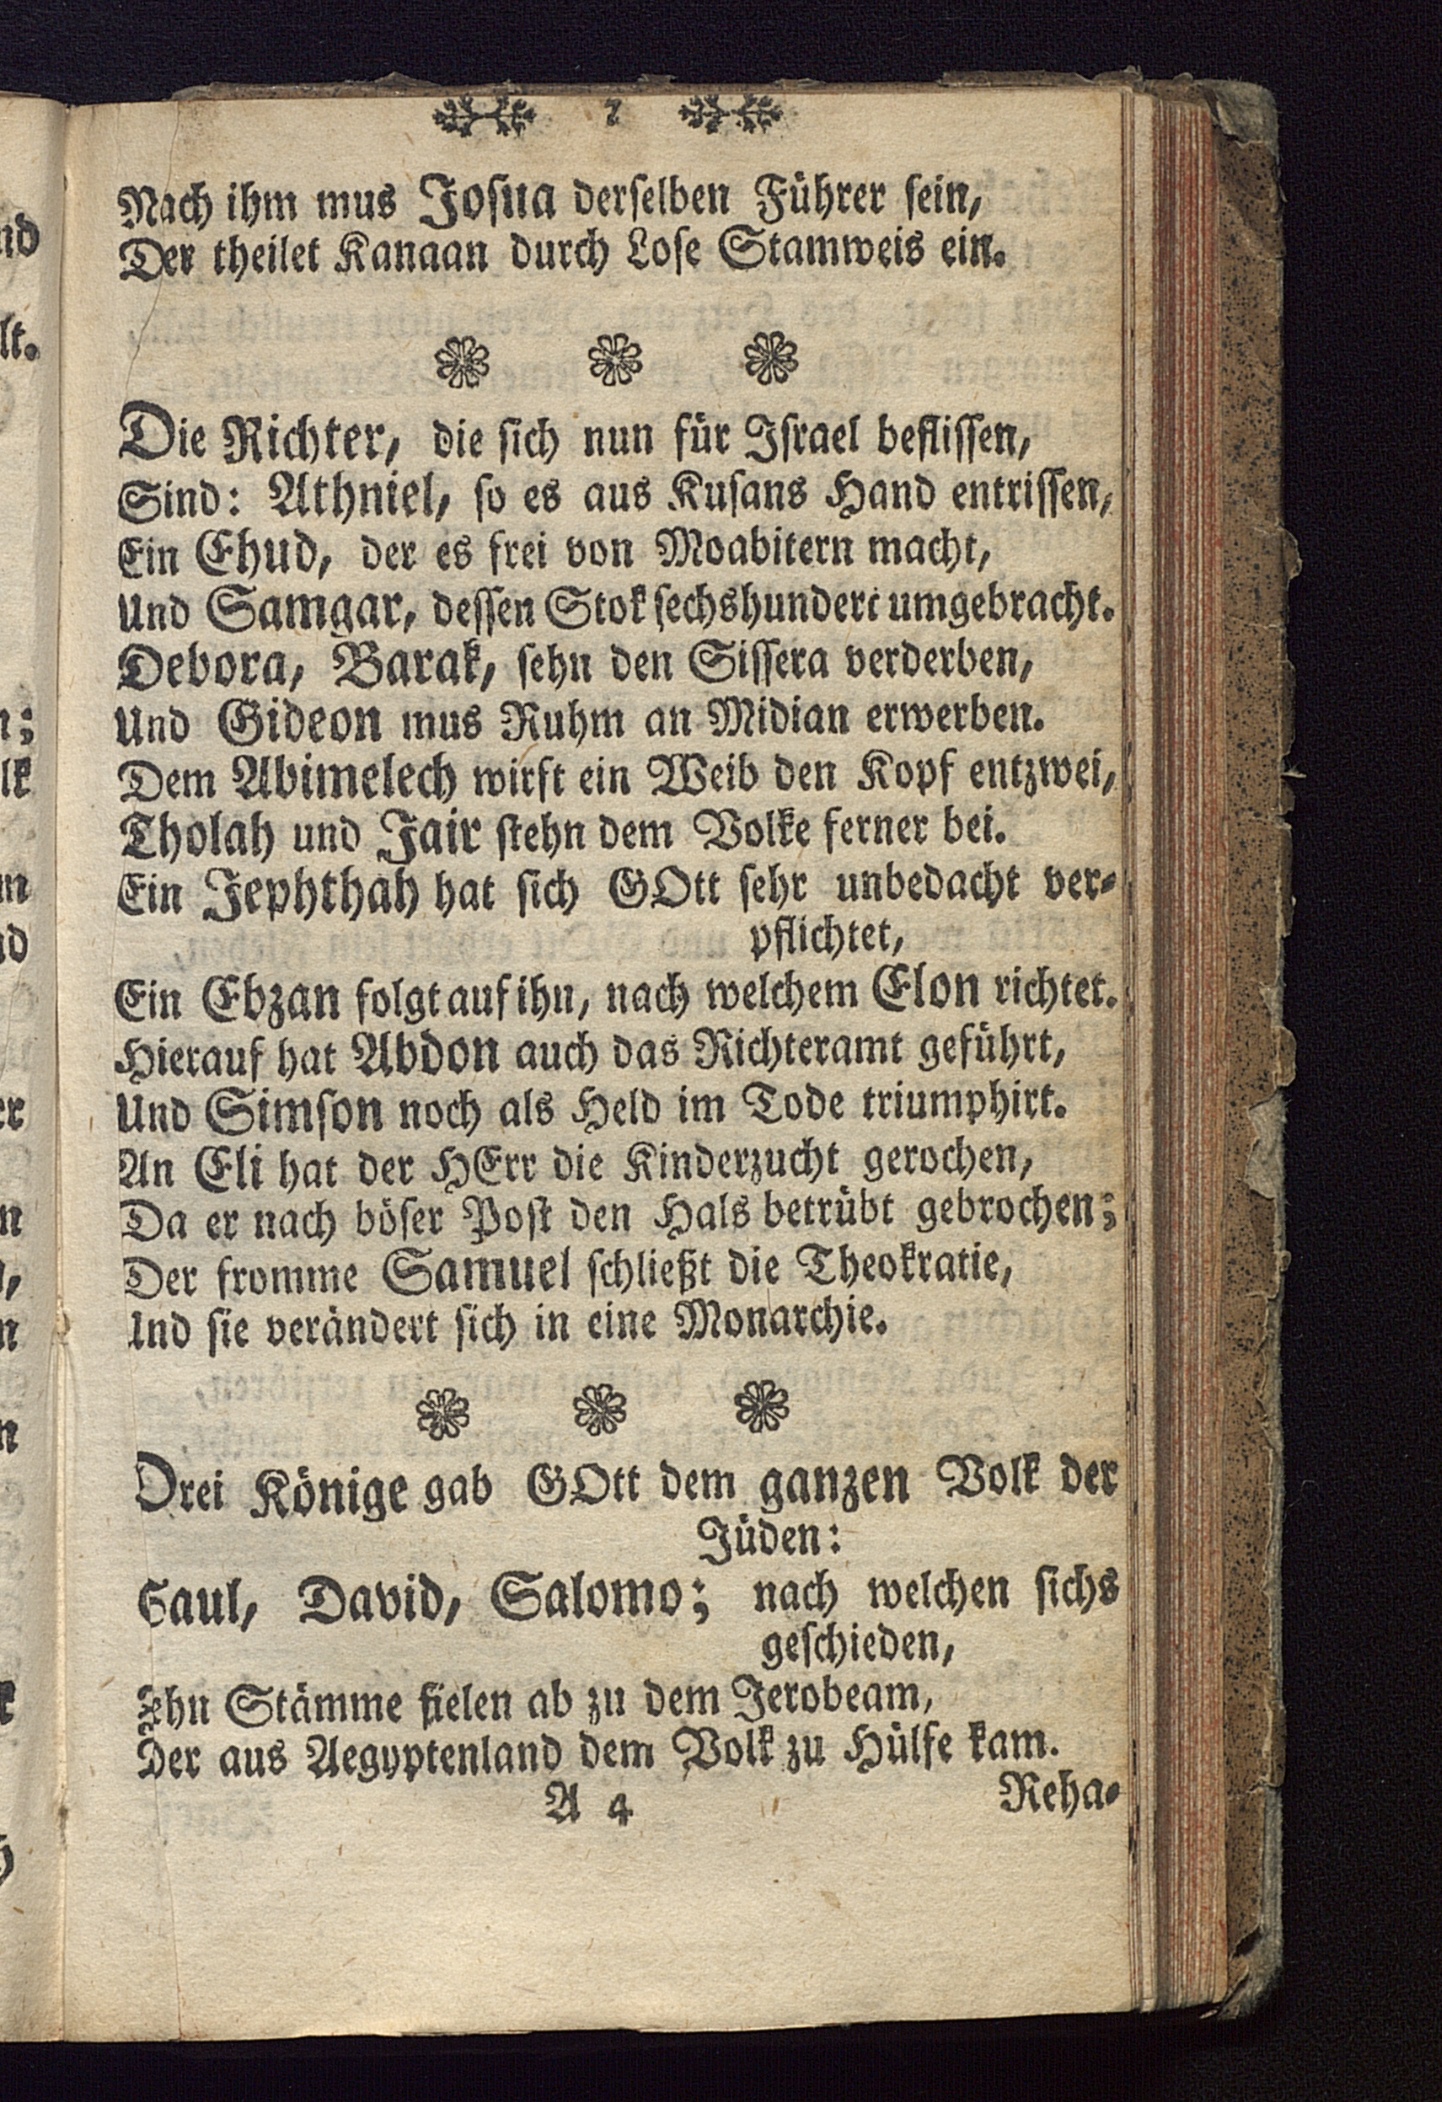 7
Nach ihm mus Josua derſelben Führer ſein,
Der theilet Kanaan durch Loſe Stamweis ein.
Die Richter, die ſich nun für Iſrael befliſſen,
Sind: Athniel, ſo es aus Kuſans Hand entriſſen,
Ein Ehud, der es frei von Moabitern macht,
Und Samgar, deſſen Stok ſechshundert umgebracht.
Debora, Barak, ſehn den Siſſera verderben,
Und Gideon mus Ruhm an Midian erwerben.
Dem Abimelech wirft ein Weib den Kopf entzwei,
Tholah und Jair ſtehn dem Volke ferner bei.
Ein Jephthah hat ſich GOtt ſehr unbedacht ver-
pflichtet,
Ein Ebzan folgt auf ihn, nach welchem Elon richtet.
Hierauf hat Abdon auch das Richteramt geführt,
Und Simſon noch als Held im Tode triumphirt.
An Eli hat der HErr die Kinderzucht gerochen,
Da er nach böſer Poſt den Hals betrübt gebrochen;
Der fromme Samuel ſchließt die Theokratie,
Und ſie verändert ſich in eine Monarchie.
Drei Könige gab GOtt dem ganzen Volk der
Jüden:
Saul, David, Salomo; nach welchen ſichs
geſchieden,
Zehn Stämme fielen ab zu dem Jerobeam,
Der aus Aegyptenland dem Volk zu Hülfe kam.
A 4
Reha-